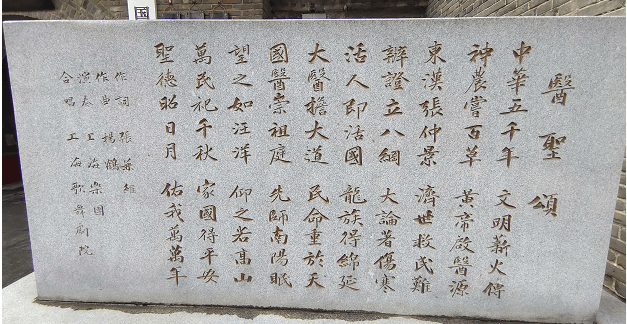 国
醫聖頌
中華五千年 文明薪火傳
神農嘗百草 黃帝啟醫源
東漢張仲景 濟世救民難
辨證立八綱 大論著傷寒
活人即活國 龍族得綿延
大醫擔大道 民命重於天
國醫崇祖庭 先師南陽眠
望之如汪洋 仰之若髙山
萬民祀千秋 家國得平安
聖德昭日月 佑我萬萬年
作詞 張兼維
作曲 楊鶴
演奏 工冶樂團
合唱 工冶歌舞劇院